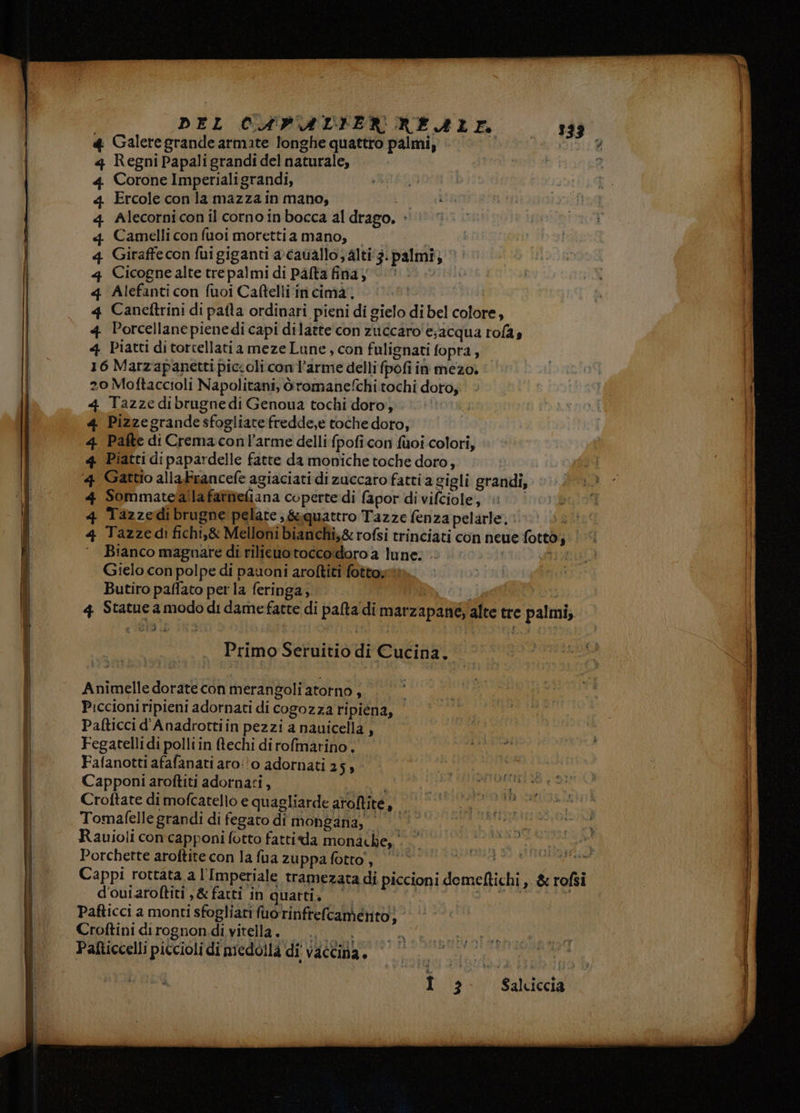 DEL CAVALIER REALE. 133
4 Galere grande armate longhe quattro palmi,
4 Regni Papali grandi del naturale,
4 Corone Imperiali grandi,
4 Ercole con la mazza in mano,
4 Alecorni con il corno in bocca al drago,
4 Camelli con ſuoi moretti a mano,
4 Giraffe con ſui giganti a cauallo, alti 3. palmi,
4 Cicogne alte tre palmi di paſta fina,
4 Alefanti con ſuoi Caſtelli in cima,
4 Caneſtrini di paſta ordinari pieni di gielo di bel colore,
4 Porcellane piene di capi di latte con zuccaro e, acqua roſa,
4 Piatti di torcellati a meze Lune, con fulignati ſopra,
16 Marzapanetti piccoli con l'arme delli ſpoſi in mezo.
20 Moſtaccioli Napolitani, ò romaneſchi tochi doro,
4 Tazze di brugne di Genoua tochi doro,
4 Pizze grande sfogliate fredde, e toche doro,
4 Paſte di Crema con l'arme delli ſpoſi con ſuoi colori,
4 Piatti di papardelle fatte da moniche toche doro,
4 Gattio alla Franceſe agiaciati di zuccaro fatti a gigli grandi,
4 Sommate a la farneſiana coperte di ſapor di viſciole,
4 Tazze di brugne pelate, & quattro Tazze ſenza pelarle.
4 Tazze di fichi, & Melloni bianchi, & roſsi trinciati con neue ſotto,
Bianco magnare di rilieuo tocco doro a lune.
Gielo con polpe di pauoni aroſtiti ſotto,
Butiro paſſato per la ſeringa,
4 Statue a modo di dame fatte di paſta di marzapane, alte tre palmi,
Primo Seruitio di Cucina.
Animelle dorate con merangoli atorno,
Piccioni ripieni adornati di cogozza ripiena,
Paſticci d'Anadrotti in pezzi a nauicella,
Fegatelli di polli in ſtechi di roſmarino.
Faſanotti afaſanati aro o adornati 25,
Capponi aroſtiti adornati,
Croſtate di moſcatello e quagliarde aroſtite,
Tomaſelle grandi di fegato di mongana,
Rauioli con capponi ſotto fatti da monache,
Porchette aroſtite con la ſua zuppa ſotto,
Cappi rottata a l'Imperiale tramezata di piccioni domeſtichi, & roſsi
d'oui aroſtiti, & fatti in quarti.
Paſticci a monti sfogliati ſuo rinfreſcamento,
Croſtini di rognon di vitella.
Paſticcelli piccioli di medolla di vaccina.
I 3 Salciccia